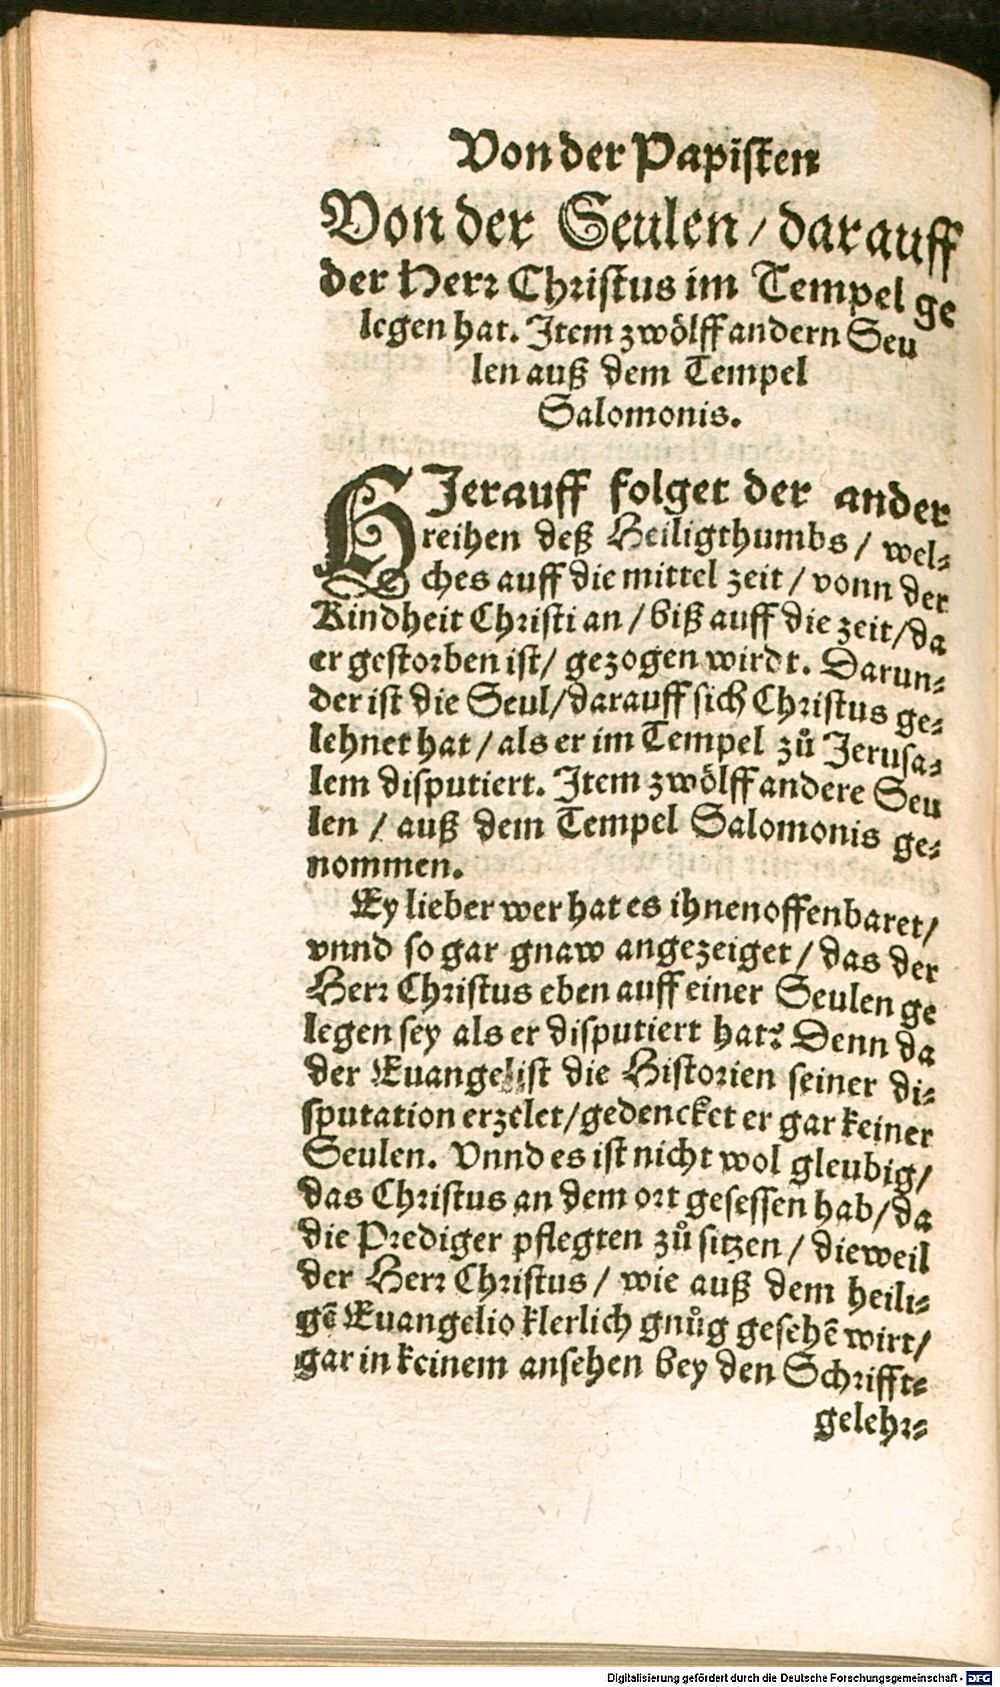 Von der Papisten
Von der Seulen / darauff
der Herr Christus im Tempel ge
legen hat. Item zwölff andern Seu
len auß dem Tempel
Salomonis.
HJerauff folget der ander
reihen deß Heiligthumbs / wel-
ches auff die mittel zeit / vonn der
Kindheit Christi an / biß auff die zeit / da
er gestorben ist / gezogen wirdt. Darun-
der ist die Seul / darauff sich Christus ge-
lehnet hat / als er im Tempel zů Jerusa-
lem disputiert. Item zwölff andere Seu
len / auß dem Tempel Salomonis ge-
nommen.
Ey lieber wer hat es ihnen offenbaret /
vnnd so gar gnaw angezeiget / das der
Herr Christus eben auff einer Seulen ge
legen sey als er disputiert hat? Denn da
der Euangelist die Historien seiner di-
sputation erzelet / gedencket er gar keiner
Seulen. Vnnd es ist nicht wol gleubig /
das Christus an dem ort gesessen hab / da
die Prediger pflegten zů sitzen / dieweil
der Herr Christus / wie auß dem heili-
gē Euangelio klerlich gnůg gesehē wirt /
gar in keinem ansehen bey den Schrifft-
gelehr-
Digitalisierung gefördert durch die Deutsche Forschungsgemeinschaft - DFG